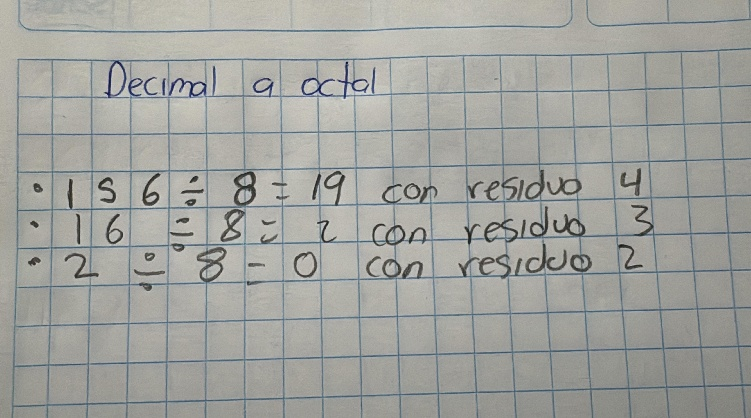 Decimal a octal
• 156 ÷ 8 = 19 con residuo 4
• 16 ÷ 8 = 2 con residuo 3
• 2 ÷ 8 = 0 con residuo 2